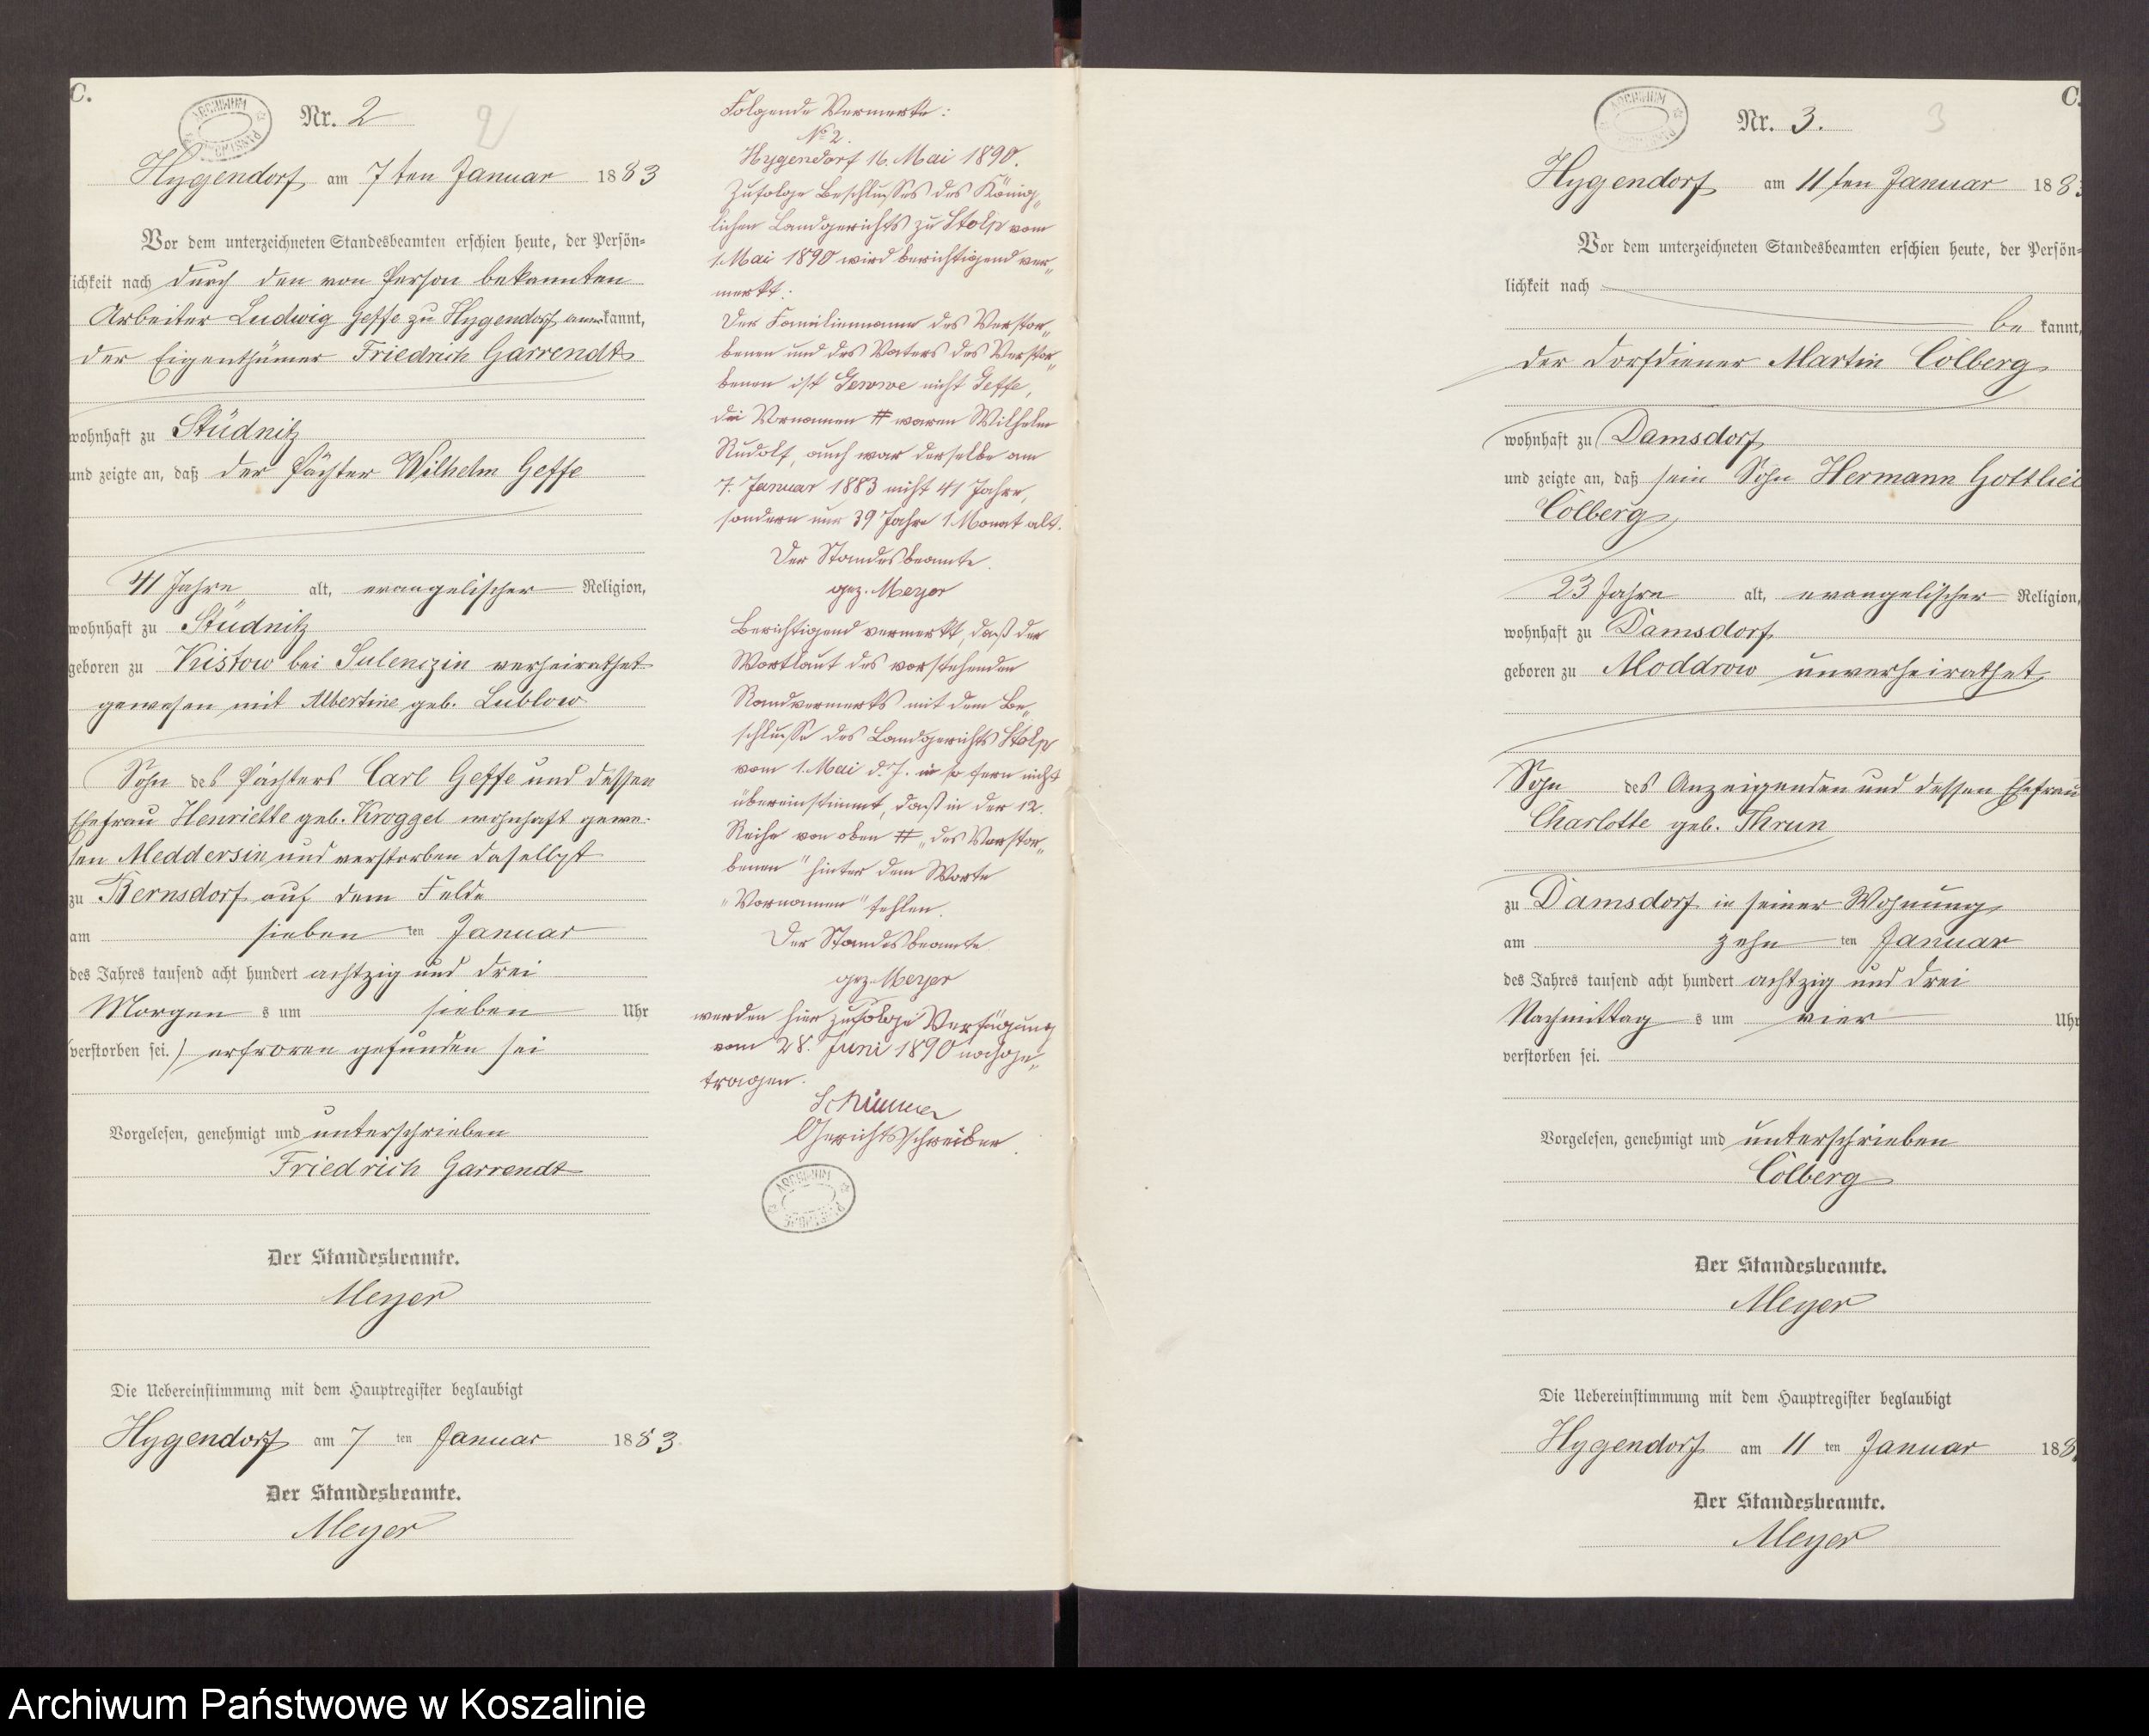 C.
ARCHIWUM PAŃSTWOWE
Nr. 2
2
Hygendorf am 7ten Januar 1883
Vor dem unterzeichneten Standesbeamten erschien heute, der Persön=
lichkeit nach durch den von Person bekannten
Arbeiter Ludwig Geffe zu Hygendorf anerkannt,
der Eigenthümer Friedrich Garrendt
wohnhaft zu Stüdnitz
und zeigte an, daß der Pächter Wilhelm Geffe
41 Jahre alt, evangelischer Religion,
wohnhaft zu Stüdnitz
geboren zu Kistow bei Sulenczin verheirathet
gewesen mit Albertine geb. Lublow
Sohn des Pächters Carl Geffe und dessen
Ehefrau Henriette geb. Kroggel wohnhaft gewe-
sen Meddersin und verstorben daselbst
zu Bernsdorf auf dem Felde
am sieben ten Januar
des Jahres tausend acht hundert achtzig und drei
Morgen s um sieben Uhr
(verstorben sei.) erfroren gefunden sei
Vorgelesen, genehmigt und unterschrieben
Friedrich Garrendt
Der Standesbeamte.
Meyer
Die Uebereinstimmung mit dem Hauptregister beglaubigt
Hygendorf am 7 ten Januar 1883.
Der Standesbeamte.
Meyer
Folgende Vermerke:
No 2.
Hygendorf 16. Mai 1890.
Zufolge Beschlusses des König„
lichen Landgerichts zu Stolp vom
1. Mai 1890 wird berichtigend ver„
merkt:
Der Familienname des Verstor„
benen und des Vaters des Verstor„
benen ist Gewwe nicht Geffe,
die Vornamen # waren Wilhelm
Rudolf, auch war derselbe am
7. Januar 1883 nicht 41 Jahre,
sondern nur 39 Jahre 1 Monat alt.
Der Standesbeamte.
gez. Meyer
Berichtigend vermerkt, daß der
Wortlaut des vorstehenden
Randvermerks mit dem Be„
schlusse des Landgerichts Stolp
vom 1. Mai d. J. in so fern nicht
übereinstimmt, daß in der 12.
Reihe von oben # „des Verstor„
benen" hinter dem Worte
„Vornamen" fehlen.
Der Standesbeamte
gez. Meyer
werden hier zufolge Verfügung
vom 28. Juni 1890 nachge„
tragen.
Gerichtsschreiber.
ARCHIWUM PAŃSTWOWE
C.
ARCHIWUM PAŃSTWOWE
Nr. 3.
3
Hygendorf am 11ten Januar 188
Vor dem unterzeichneten Standesbeamten erschien heute, der Persön=
lichkeit nach
be kannt,
der Dorfdiener Martin Cölberg
wohnhaft zu Damsdorf
und zeigte an, daß sein Sohn Hermann Gottlieb
Cölberg
23 Jahre alt, evangelischer Religion,
wohnhaft zu Damsdorf
geboren zu Moddrow unverheirathet
Sohn des Anzeigenden und dessen Ehefrau
Charlotte geb. Thrun
zu Damsdorf in seiner Wohnung
am zehn ten Januar
des Jahres tausend acht hundert achtzig und drei
Nachmittag s um vier Uhr
verstorben sei.
Vorgelesen, genehmigt und unterschrieben
Cölberg
Der Standesbeamte.
Meyer
Die Uebereinstimmung mit dem Hauptregister beglaubigt
Hygendorf am 11 ten Januar 188
Der Standesbeamte.
Meyer
Archiwum Państwowe w Koszalinie